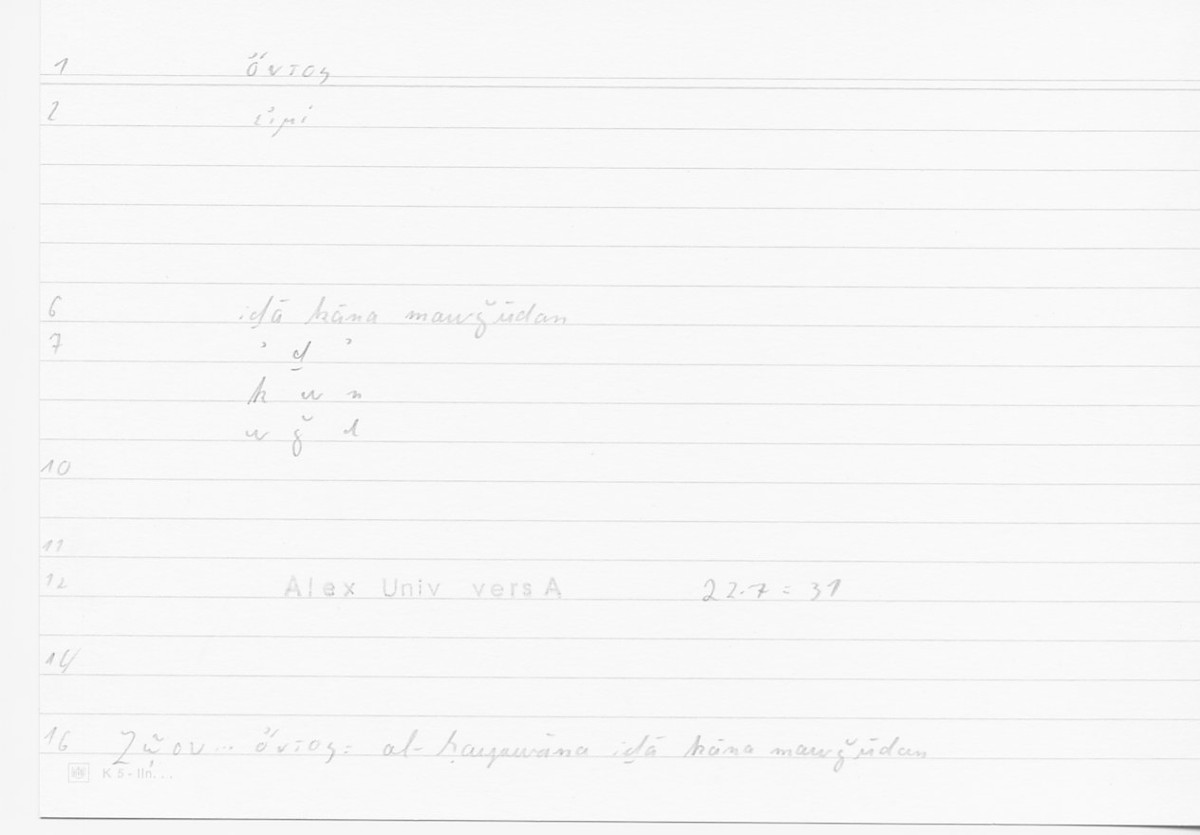 1 ὄντος
2 εἰμί
6 iḏā kāna mawǧūdan
7 ʾ ḏ ʾ
k w n
w ǧ d
10
11
12 Alex Univ vers A 22.7 = 31
14
16 Ζῷον... ὄντος: al-ḥayawāna iḏā kāna mawǧūdan
K 5 - lin...